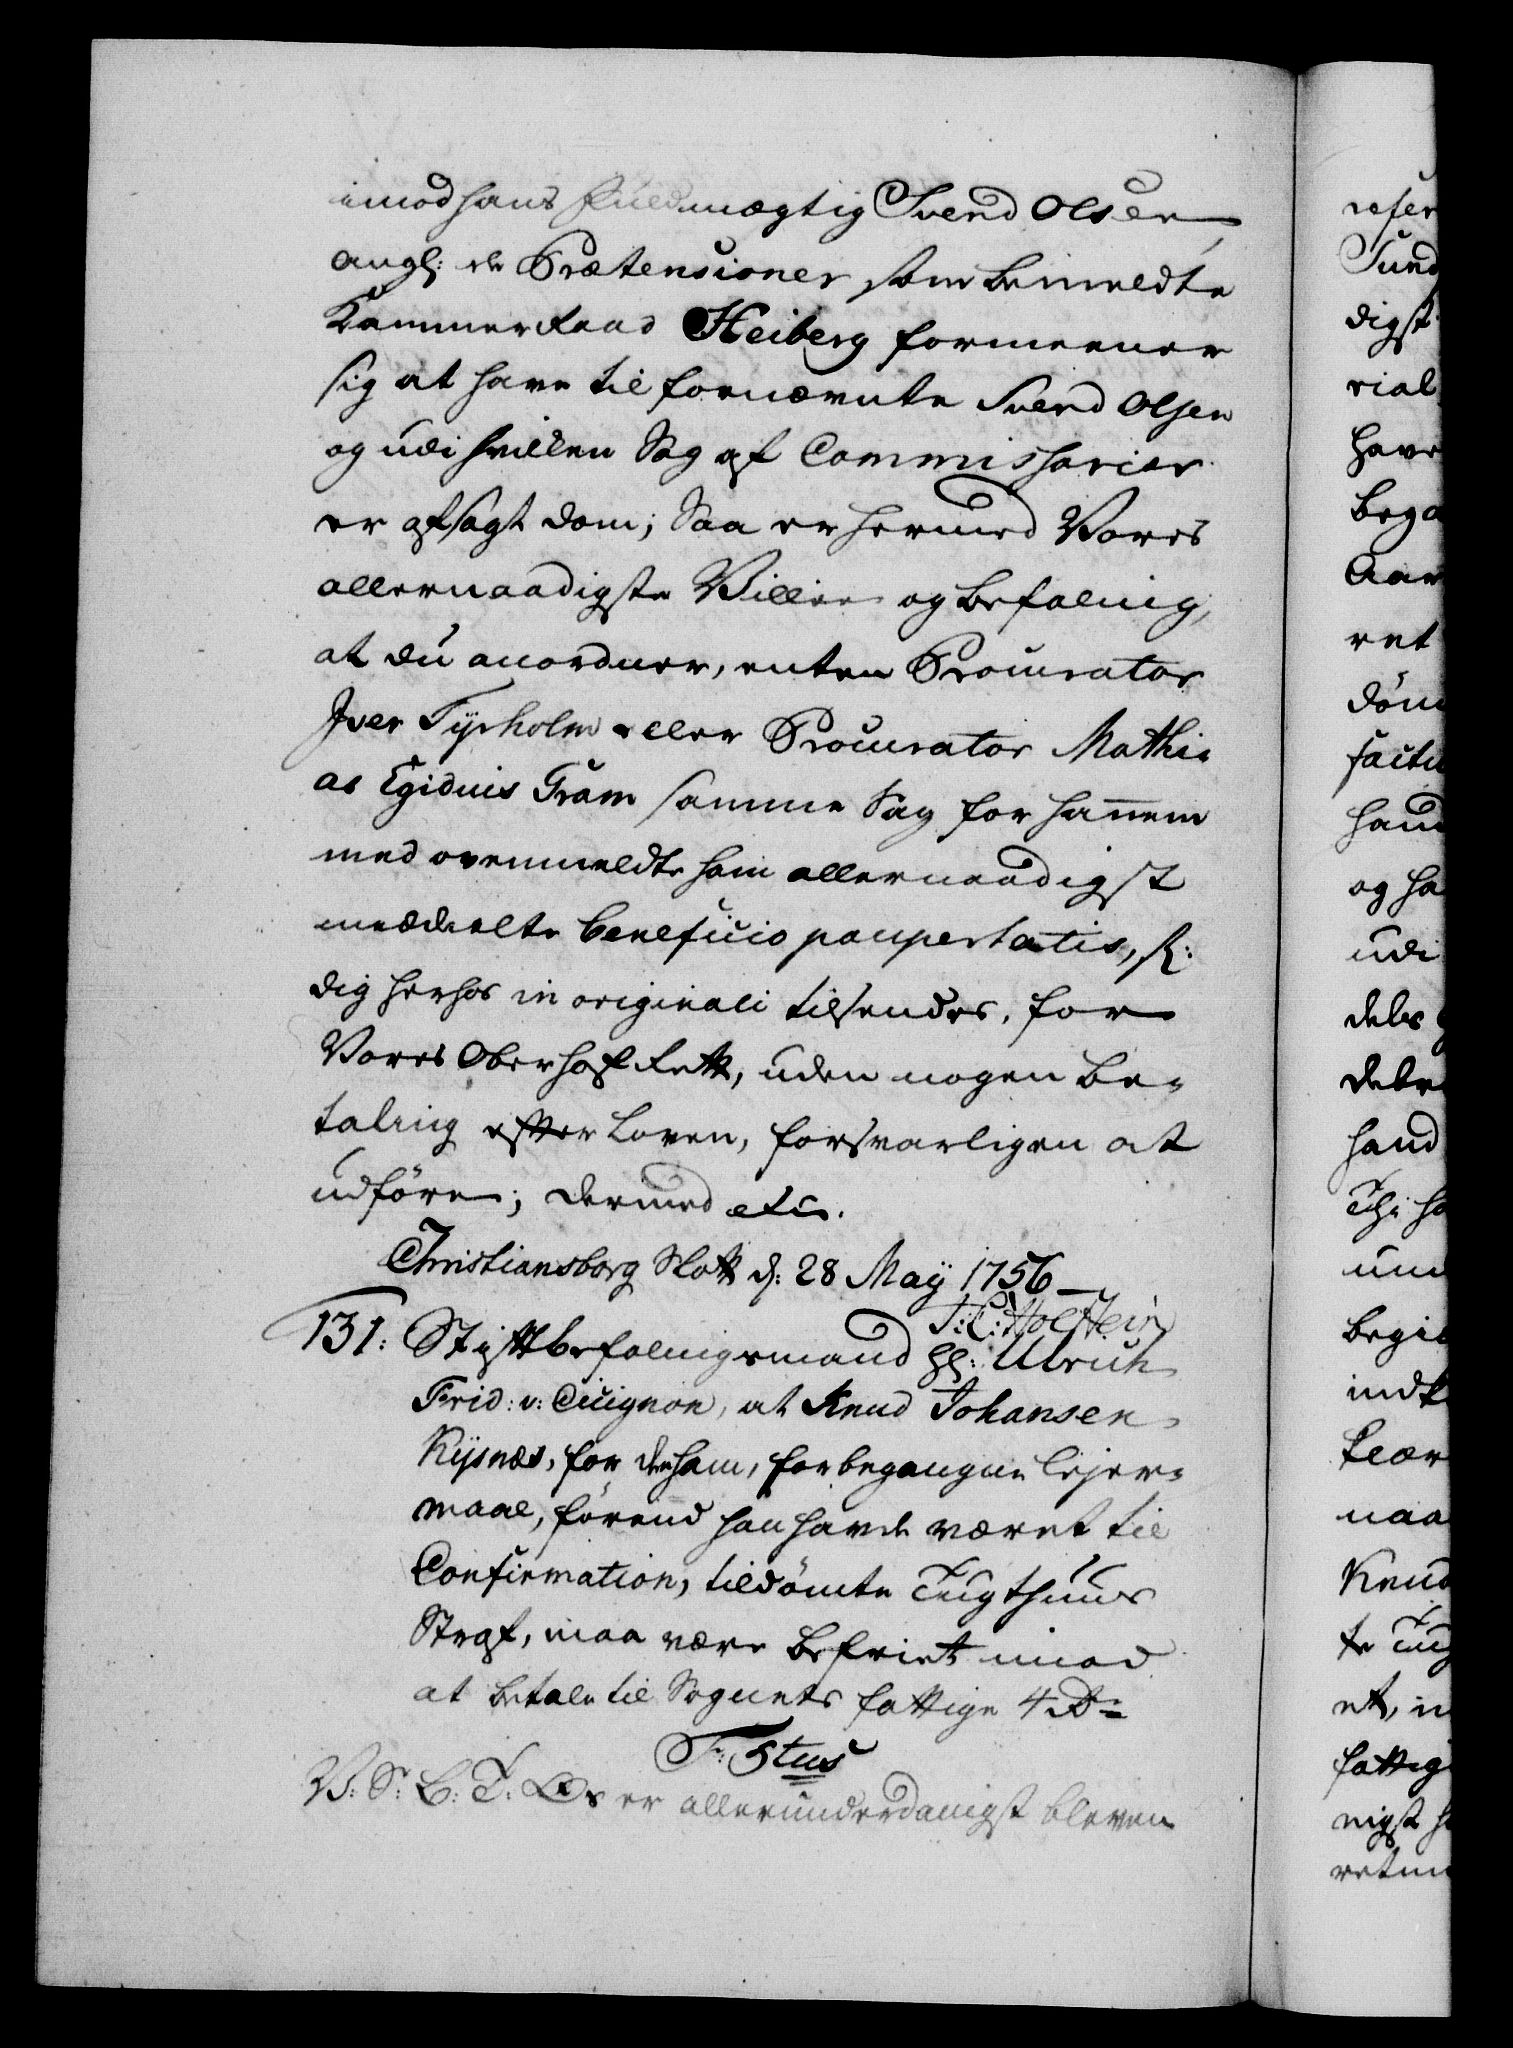 imod hans Fuldmægtig Svend Olsen
angl: de Prætensioner som bemeldte
Kammerraad Heiberg formeener
sig at have til fornævnte Svend Olsen
og udi hvilken Sag af Commissharier
er afsagt dom; Saa er hermed Vores
allernaadigste Villie og befaling,
at du anordner, enten Procurator
Iver Tyrholm eller Procurator Mathi-
as Egidius Fram samme Sag for hannem
med ovenmeldte ham allernaadigst
meddeelte beneficio paupertatis,
dig herhos in originali tilsendes, for
Vores Oberhof Rett, uden nogen be-
taling efter Loven, forsvarligen at
udföre; dermed etc.
Christiansborg Slott d: 28 May 1756
J: L: Holstein
131: Stiftbefalingsmand Hl: Ulrich
Frid: v: Cicignon, at Knud Johansen
Kysnæs, for den ham, for begangne lejer-
maal, förend han havde været til
Confirmation, tildömte Tugthuus
Straf, maa være befriet imod
at betale til Sognets fattige 4 Rd
F: 5tus
V: S: G: T: Os er allerunderdanigst bleven
refer
Svend
digst
rial
have
bega
Aar
ret
döm
factu
hand
og ha
udi
dels
dele
hand
Thi ha
und
begie
indk
klær
naa
Knud
te Tug
et, i
fattig
nigst h
retni